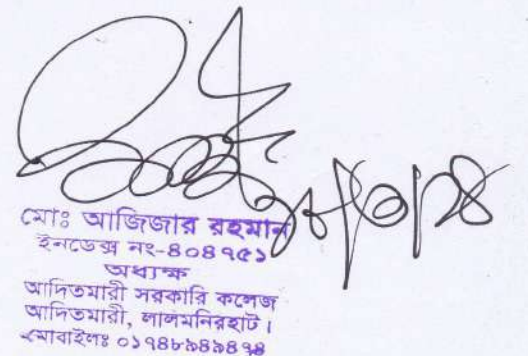 মোঃ আজিজার রহমান
ইনডেক্স নং-৪০৪৭৫১
অধ্যক্ষ
আদিতমারী সরকারি কলেজ
আদিতমারী, লালমনিরহাট।
মোবাইলঃ ০১৭৪৮৯৪৯৪৭৪